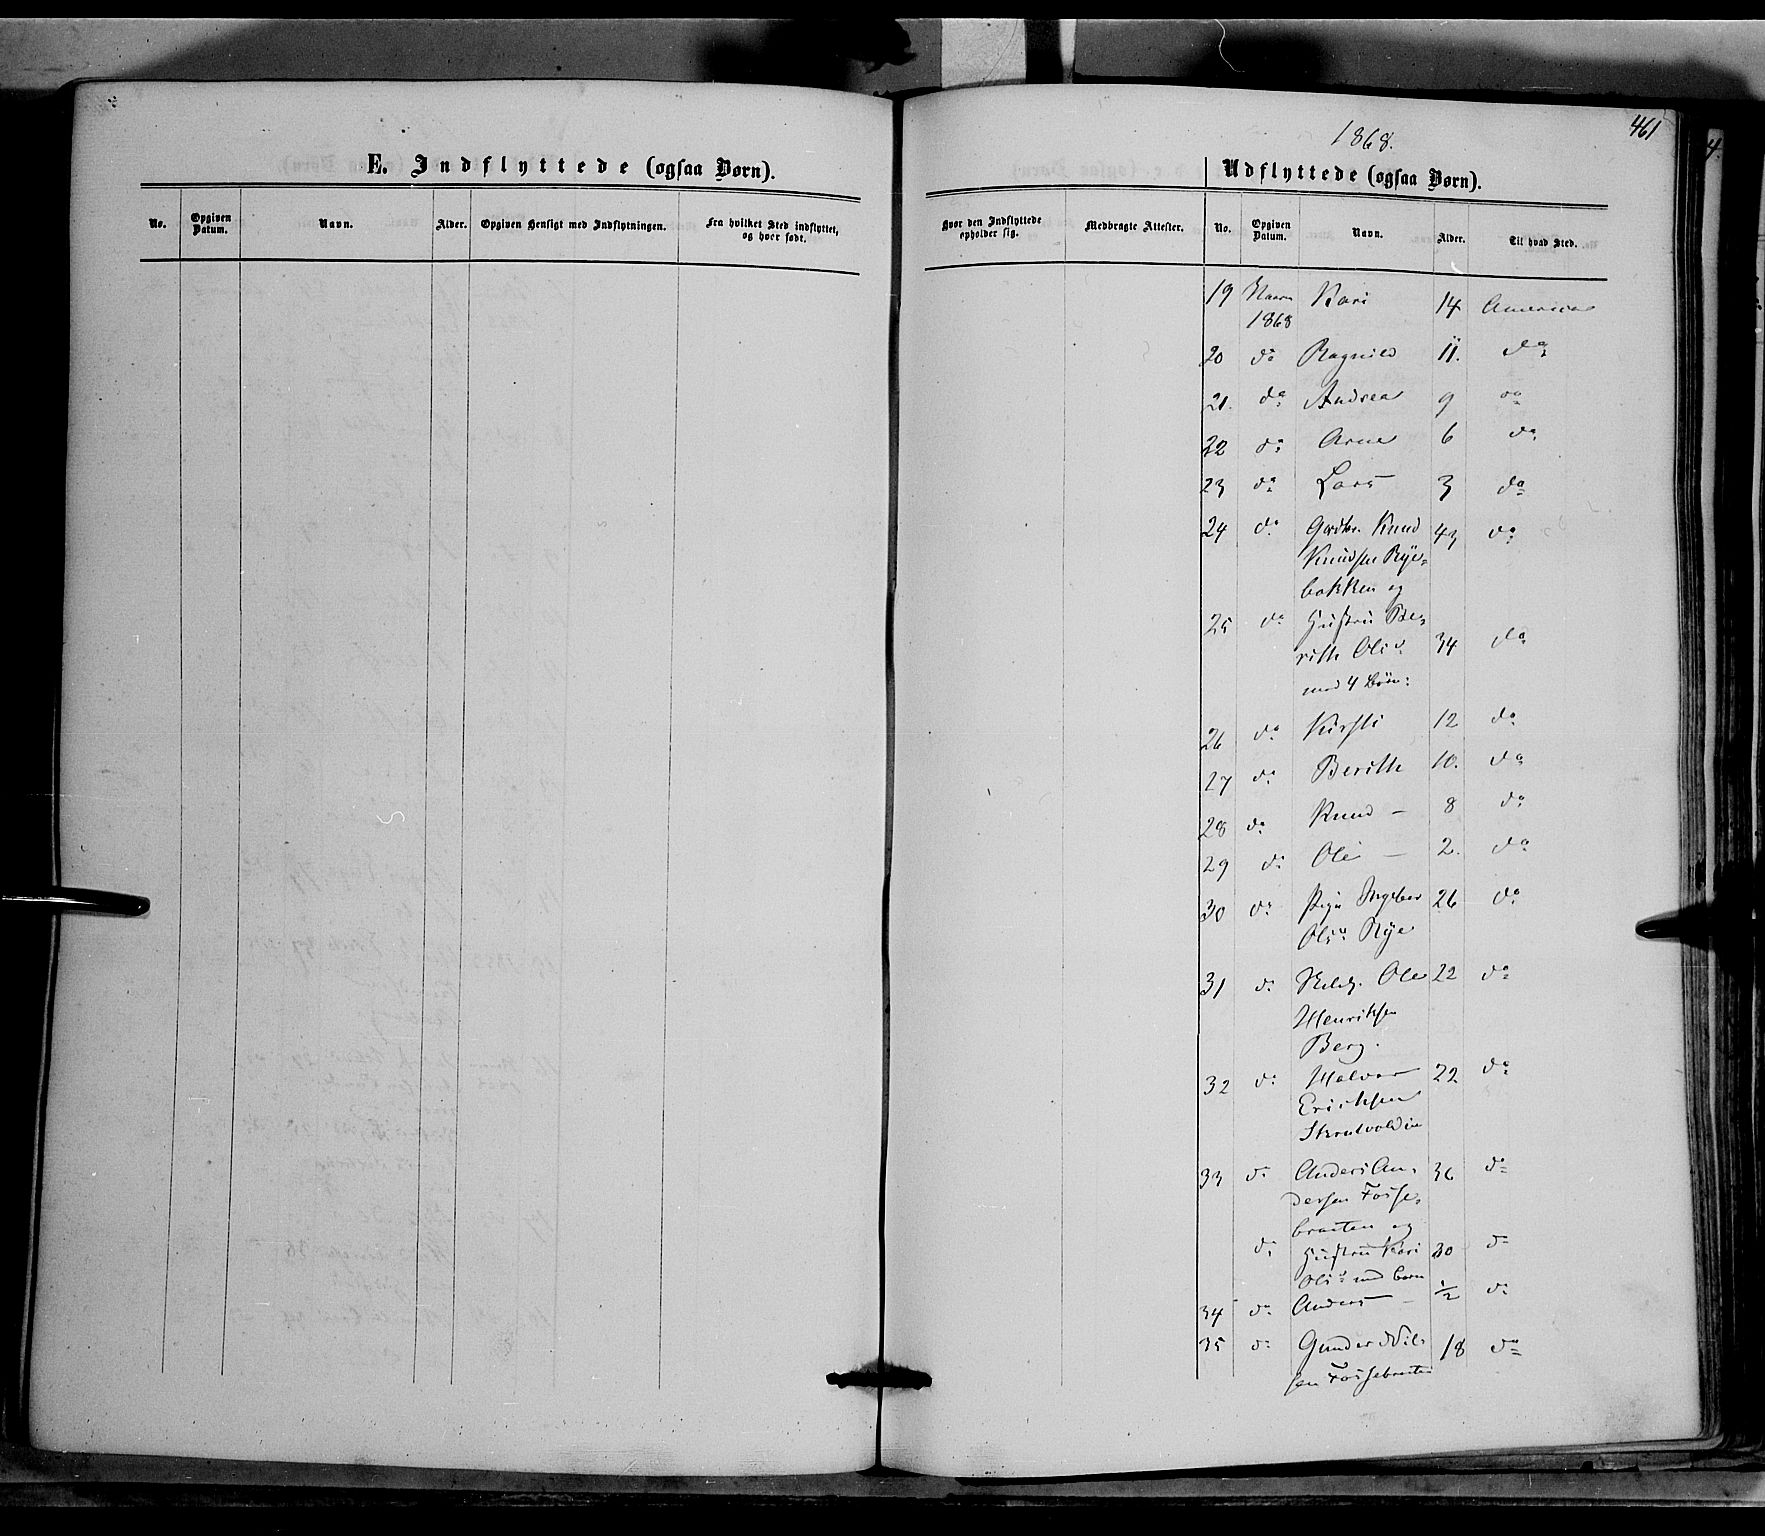 461
1868.
E. Indflyttede (ogsaa Børn).
Udflyttede (ogsaa Børn).
No.
Opgiven Datum.
Navn.
Alder.
Opgiven Hensigt med Indflytningen.
Fra hvilket Sted indflyttet, og hvor født.
Hvor den Indflyttede opholder sig.
Medbragte Attester.
No.
Opgiven Datum.
Navn.
Alder.
Til hvad Sted.
19 Kari 14 America
1868
20 do Ragnild 11. do
21. do Andrea 9 do
22 do Arne 6 do
23 do Lars 3 do
24 do Gårdbr. Knud 43 do
Knudsen Rye-
bakken og
25 do Hustru Be-
rithe Olsd. 34 do
med 4 Børn:
26 do Kirsti 12 do
27 do Berithe 10. do
28 do Knud — 8 do
29 do Ole — 2. do
30 do Pige Ingebor 26 do
Olsd. Rye
31 do Ole 22 do
Henriksen
Berg.
32 do Halvor 22 do
Eriksen
33 do Anders An- 36 do
dersen Fosse-
braaten og
do Hustru Kari 30 do
Olsd. med Barn
34 do Anders — 1/2 do
35 do Gunder Nil- 18 do
sen Fossebraaten